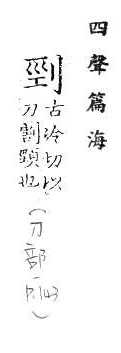 四聲篇海
剄
古冷切以
刀割頸也
(刀部 P.143)